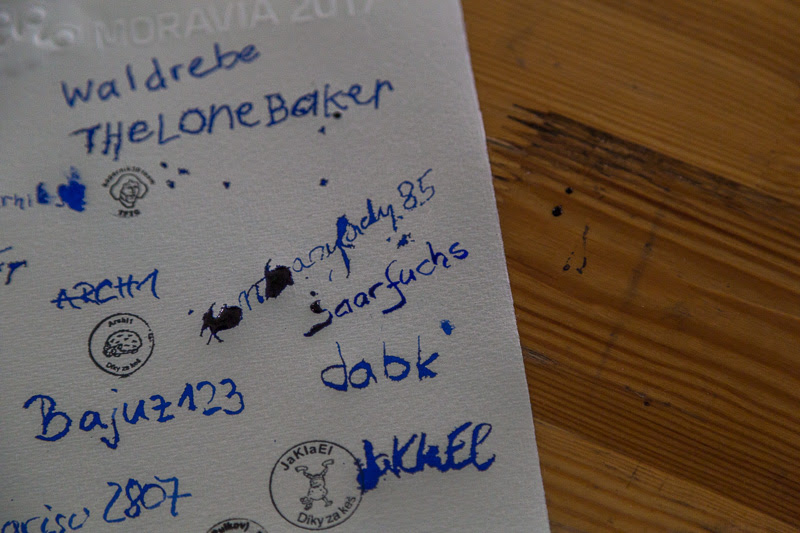 MORAVIA 2017
Waldrebe
THeLoneBaker
ARCHI1
Archi1
Díky za keš
saarfuchs
dabk
Bajuz123
JaKlaEl
Díky za keš
JaKlaEl
2807